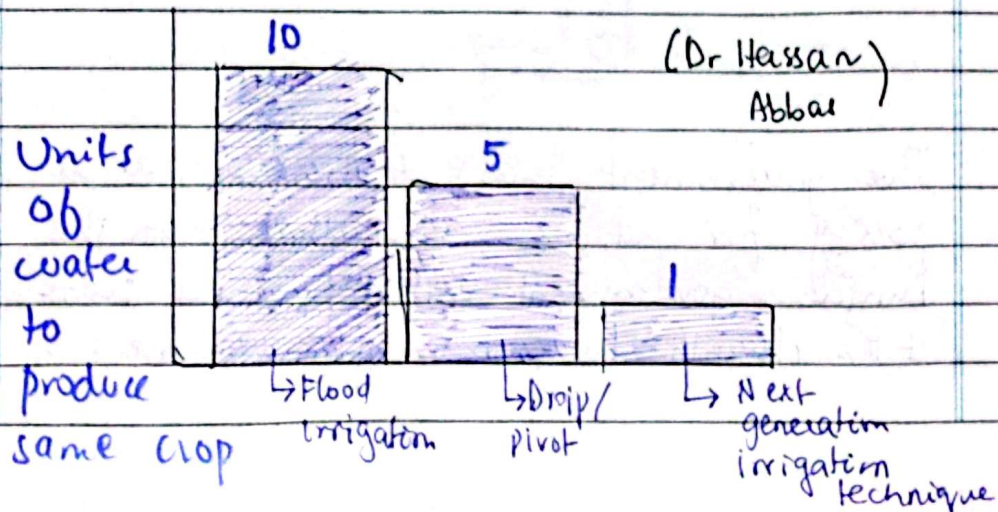 10
(Dr Hassan)
Abbas
Units
of
water
to
produce
same crop
5
1
Flood
irrigation
Droip/
pivot
Next
generation
irrigation
technique